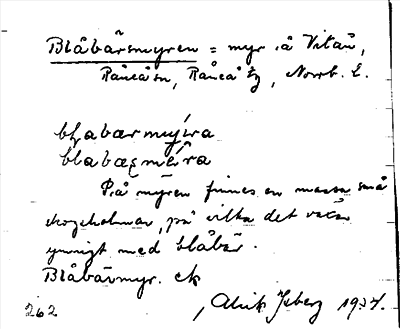 Blåbärsmyren = myr å Vitån,
Råneå sn, Råneå tg, Norrb. l.
blabærmyira
blabæṛmȧira
På myren finnes en massa små
skogsholmar, på vilka det växer
ymnigt med blåbär.
Blåbärmyr. ck
262
Alrik Isberg 1937.